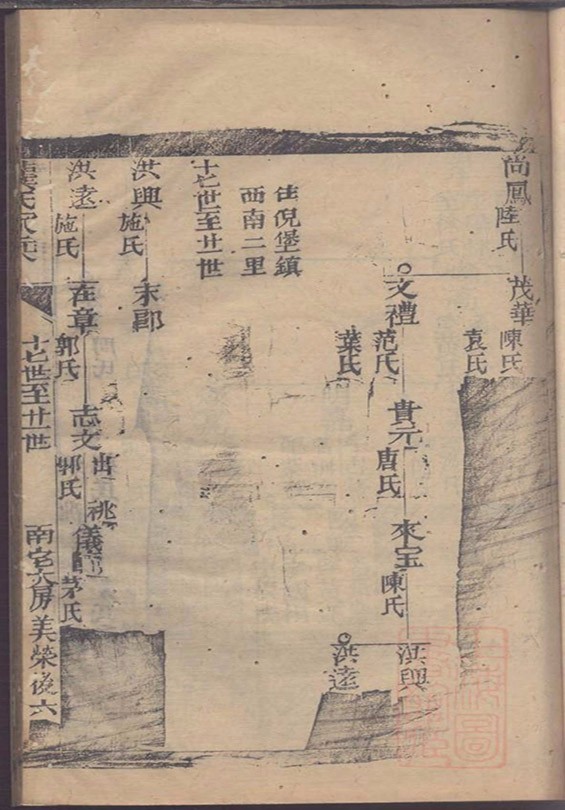 尚鳳
陸氏
茂華
陳氏
袁氏
文禮
范氏
葉氏
貴元
唐氏
來宝
陳氏
洪興
洪逵
住倪堡鎮
西南二里
十七世至廿世
洪興
施氏
末郎
洪逵
施氏
在章
郭氏
志文
出祧
郭氏
儀
茅氏
十七世至廿世
南宅大房美榮後六